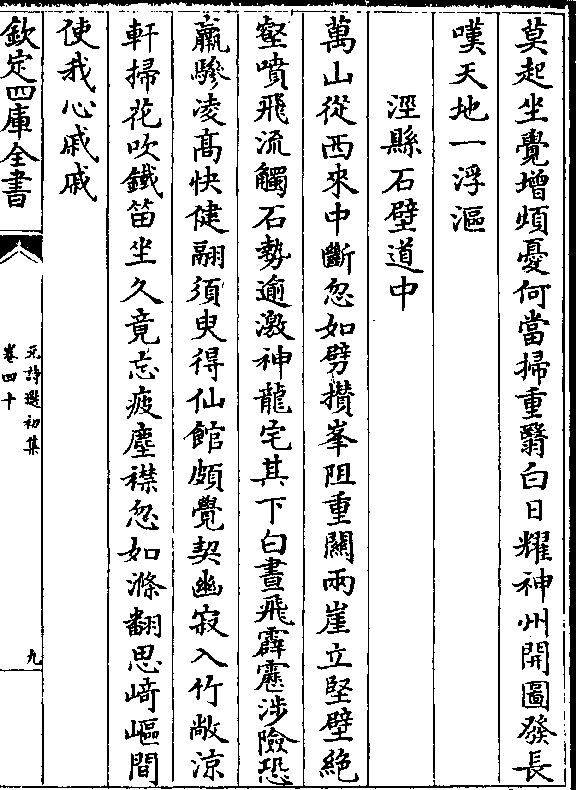 莫起坐覺增煩憂何當掃重翳白日耀神州開圖發長
嘆天地一浮漚
涇縣石壁道中
萬山從西來中斷忽如劈攅峯阻重關兩崖立堅壁絶
壑噴飛流觸石勢逾激神龍宅其下白晝飛霹靂涉險恐
羸驂凌髙快健翮須臾得仙館頗覺契幽寂入竹敞涼
軒掃花吹鐵笛坐久竟忘疲塵襟忽如滌翻思﨑嶇間
使我心戚戚
欽定四庫全書
元詩選初集
卷四十
九